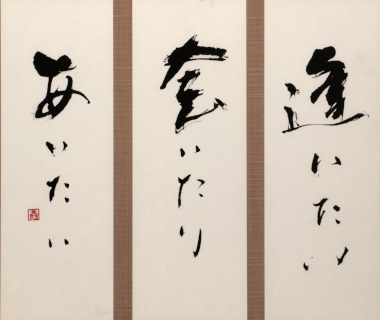 逢いたい
會いたり
あいたい